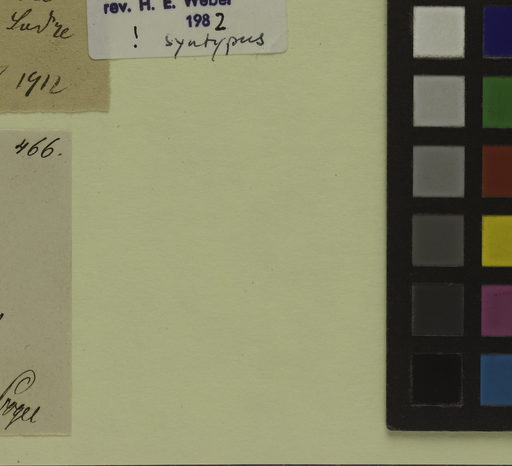 Sudre
1912
rev. H. E. Weber
1982
! syntypus
466.
Progel